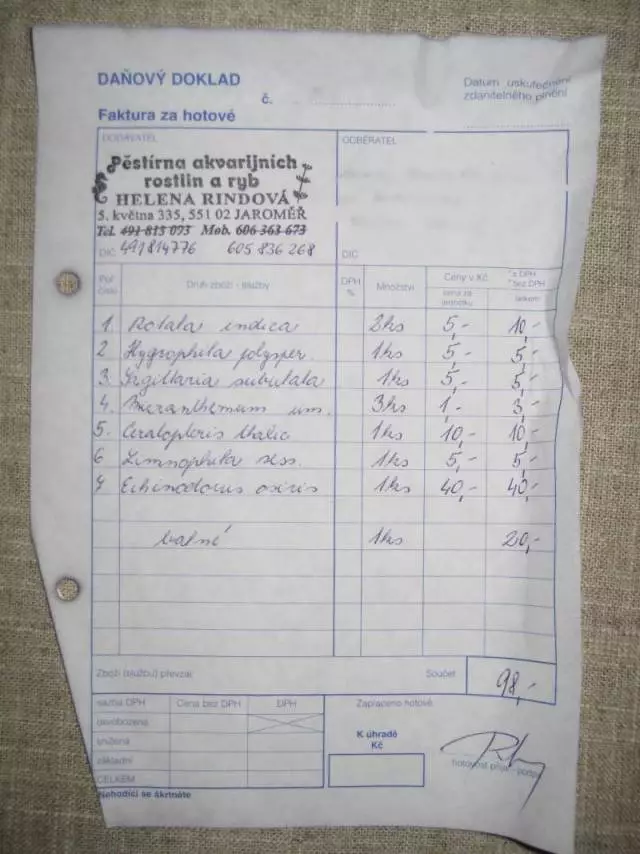 DAŇOVÝ DOKLAD
č.
Datum uskutečnění
zdanitelného plnění
Faktura za hotové
DODAVATEL
ODBĚRATEL
Pěstírna akvarijních
rostlin a ryb
HELENA RINDOVÁ
5. května 335, 551 02 JAROMĚŘ
Tel. 491 815 093 Mob. 606 363 673
DIČ 491814776 605 836 268
DIČ
Poř. číslo
Druh zboží - služby
DPH %
Množství
Ceny v Kč
cena za jednotku
* s DPH
* bez DPH
celkem
1. Rotala indica 2ks 5,- 10,-
2 Hygrophila polysper. 1ks 5,- 5,-
3. Sagittaria subulata 1ks 5,- 5,-
4. Micranthemum um. 3ks 1,- 3,-
5. Ceratopteris thalic 1ks 10,- 10,-
6 Limnophila sess. 1ks 5,- 5,-
7 Echinodorus osiris 1ks 40,- 40,-
balné 1ks 20,-
Zboží (službu) převzal
Součet
98,-
sazba DPH
Cena bez DPH
DPH
Zaplaceno hotově
osvobozeno
snížená
K úhradě
Kč
základní
CELKEM
hotovost přijal - podpis
Nehodící se škrtněte